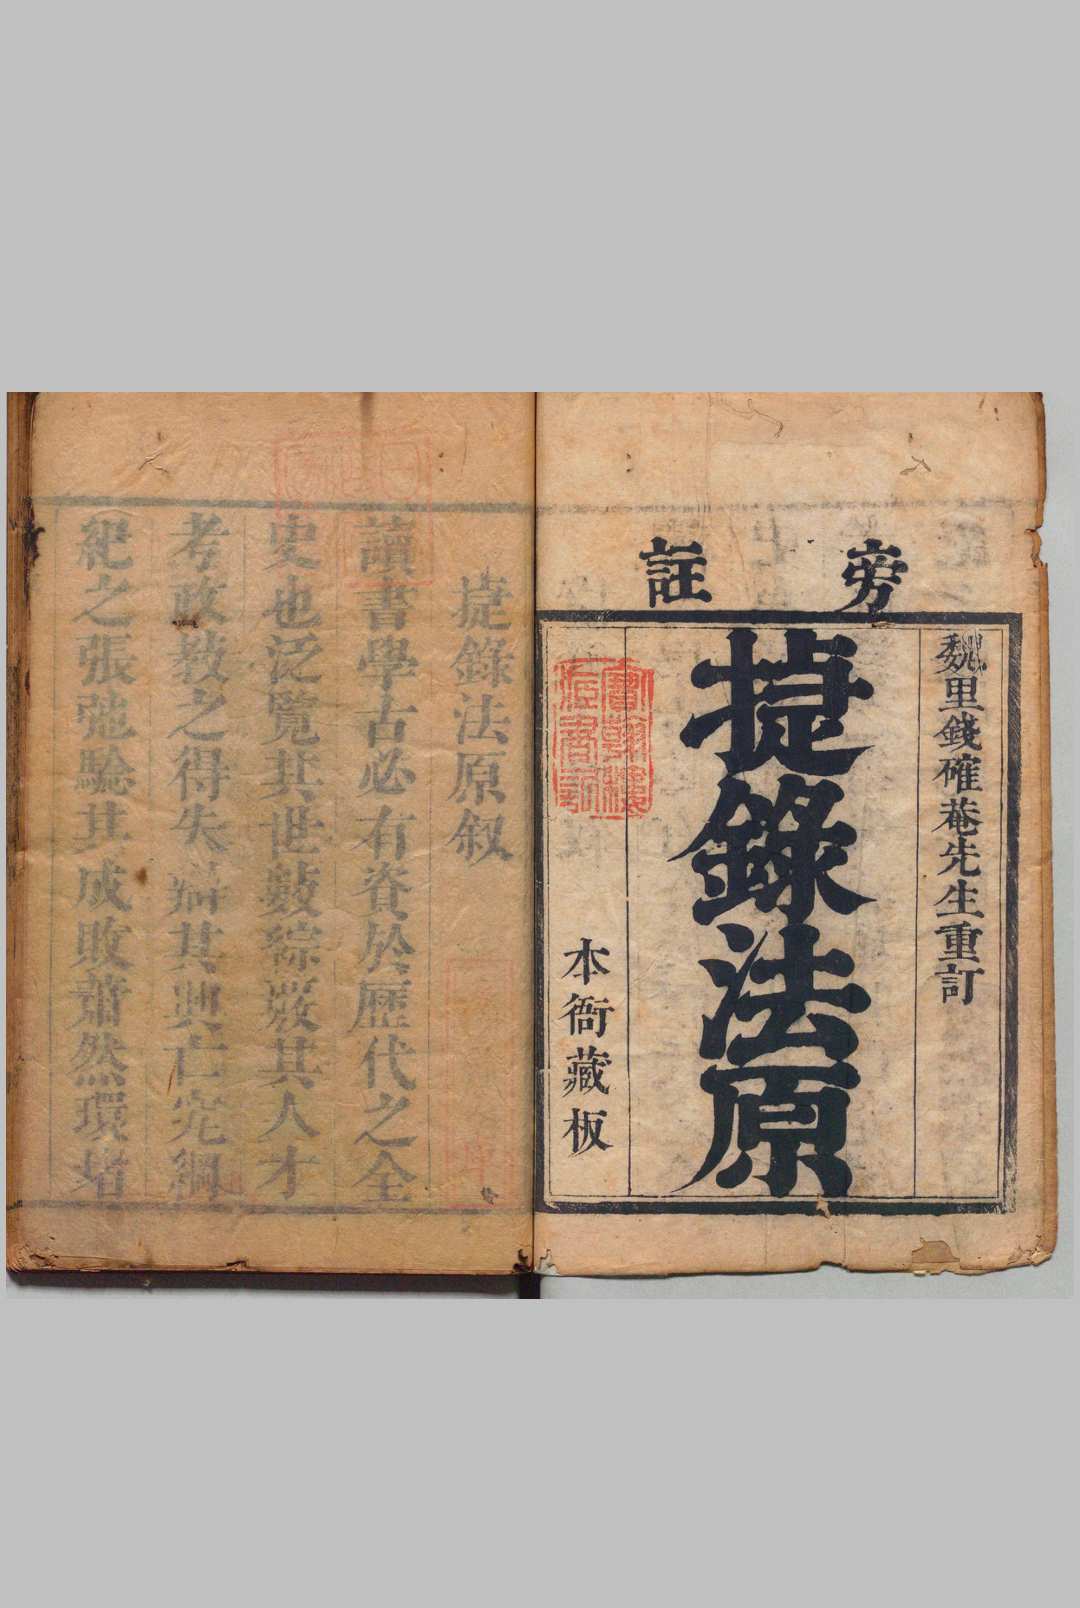 旁註
魏里錢確菴先生重訂
捷錄法原
本衙藏板
捷錄法原叙
讀書學古必有資於歷代之全
史也泛覧其世數綜覈其人才
考政教之得失辯其興亡究綱
紀之張弛驗其成敗蕭然環堵